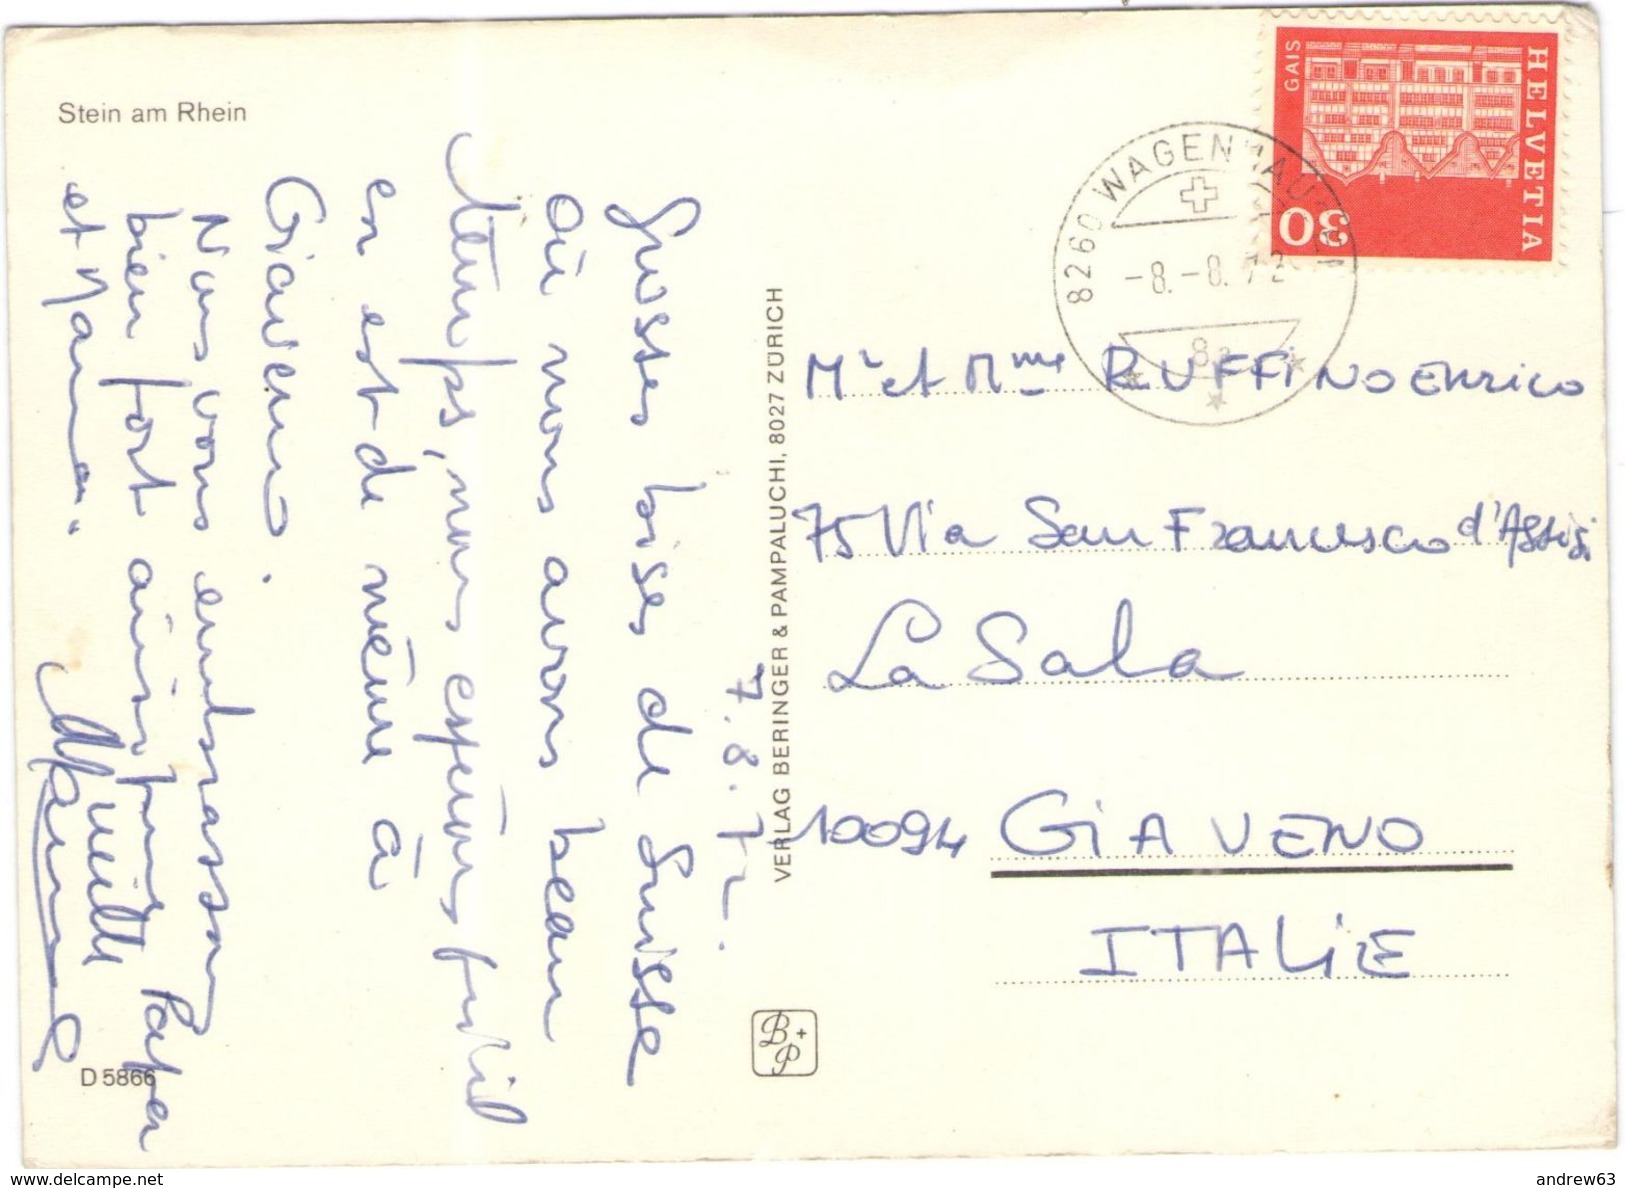 Stein am Rhein
7.8.72.
Grosses bises de Suisse
où nous avons beau
temps, nous espérons qu'il
en est de même à
Giaveno.
Nous vous embrassons
bien fort ainsi que Papa
et Mama.
D 5866
VERLAG BERINGER & PAMPALUCHI, 8027 ZÜRICH
B+P
HELVETIA
GAIS
30
8260 WAGENHAUSEN
-8.-8.72
8a
Mr et Mme RUFFiNO Enrico
75 Via San Francesco d'Assisi
La Sala
10094 GiAVENO
ITALiE
andrew63
delcampe.net